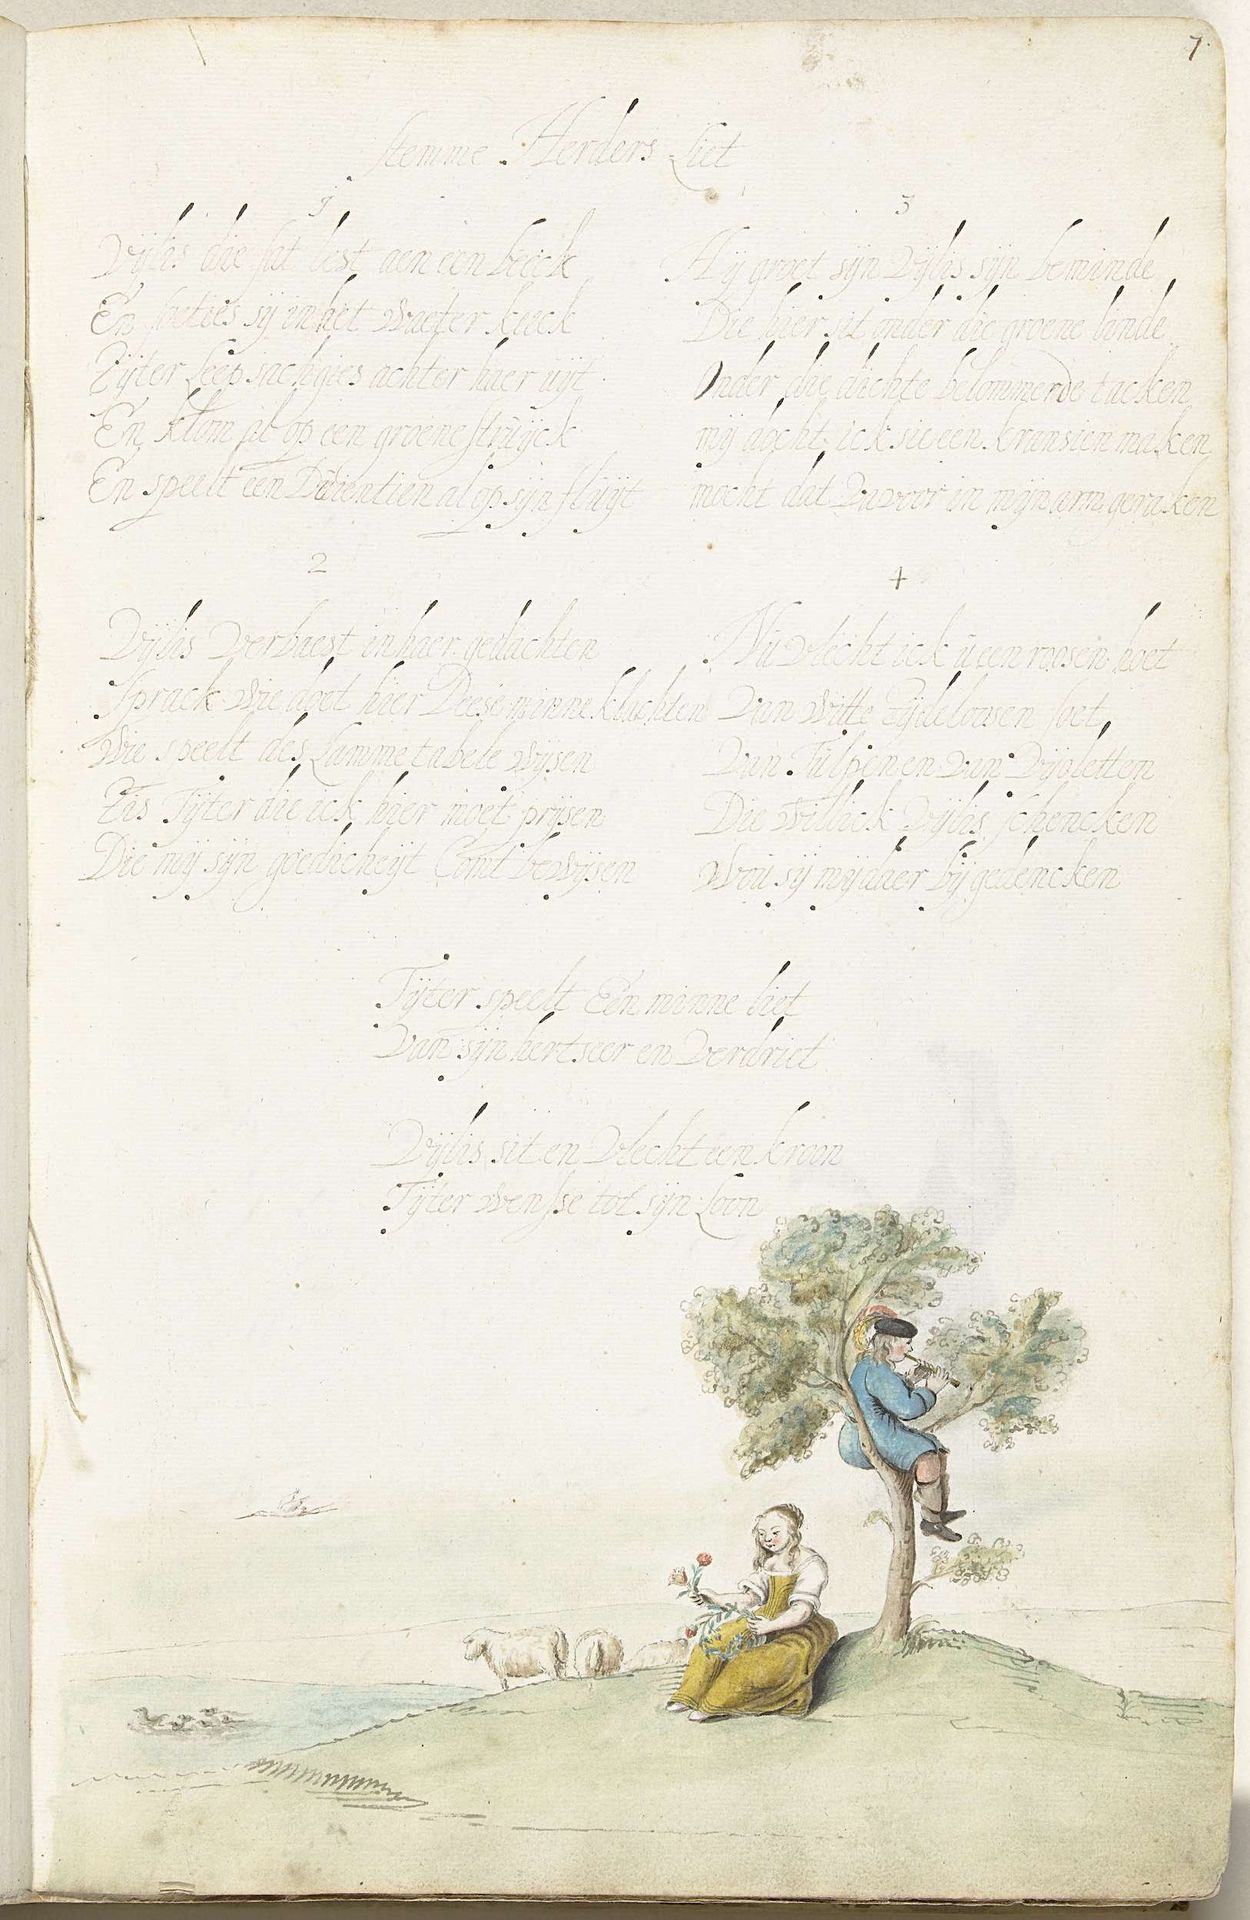 7
stemme Herders Liet
1
Vijlis die sat lest aen een beeck
En soeties sij in het waeter keeck
Tijter Leep sachgies achter haer uijt
En klom al op een groene struijck
En speelt een Duientien al op sijn fluijt
2
Vijlis verbaest in haer gedachten
Sprack Wie doet hier Deese minneklachten
Wie speelt des Lammetabele Wijsen
Tis Tijter die ick hier moet prijsen
Die mij sijn goedicheijt Comt bewijsen
3
Hij groet sijn Vijlis sijn beminde
Die hier sit onder die groene linde
Onder die dichte belommerde tacken
mij docht ick sie een kransien maken
mocht dat Duvoor in mijn arm geraken
4
Nu vlecht ick u een roosen hoet
Van Witte Tijdeloosen soet
Van Tulpen en Van Vijoletten
Die wil ick Vijlis schencken
Wou sij mij daer bij gedencken
Tijter speelt Een minne liet
Van sijn hertseer en Verdriet
Vijlis sit en Vlecht een kroon
Tijter wensse tot sijn Loon